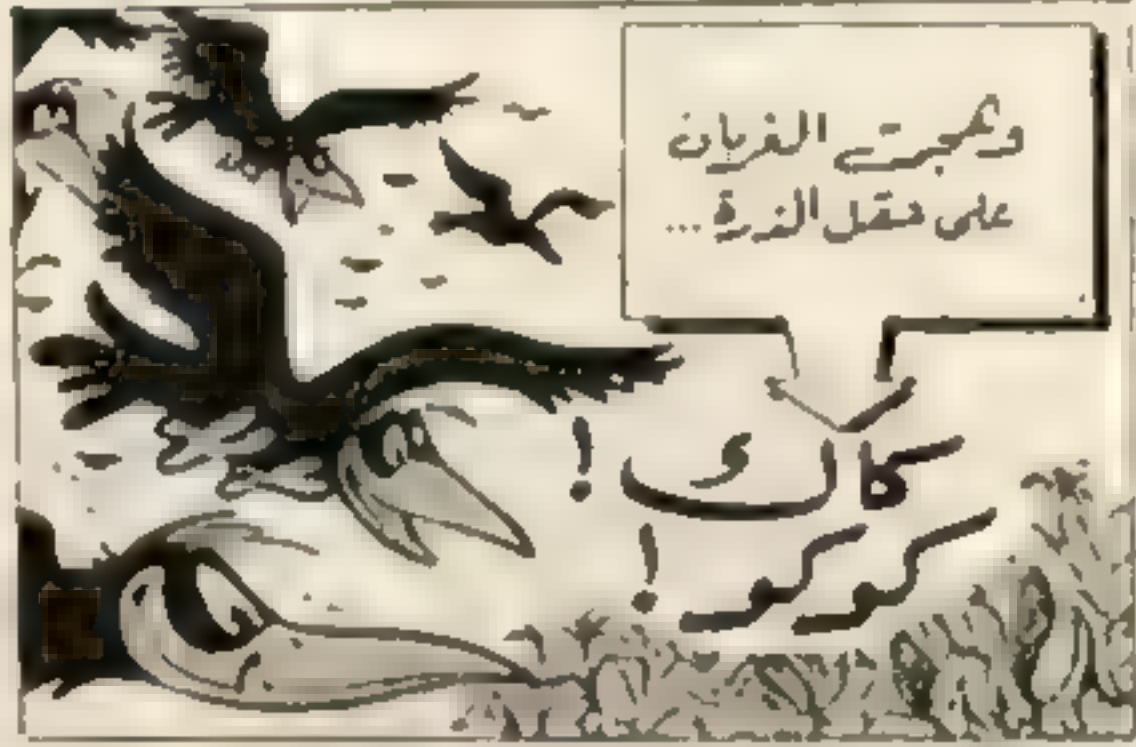 وهجمت الغربان
على حقل الذرة...
كاك!
كوكو!